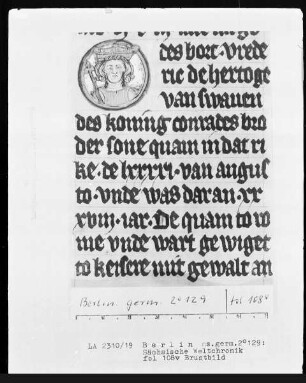 des bort · vrede
ric de hertoge
van swauen
des koning conrades bro
der sone quam in dat ri
ke · de lxxxxi · van augus
to · vnde was dar an · xx
xviij · iar · De quam to ro
me vnde wart gewiget
to keisere mit gewalt an
Berlin germ. 2° 129 fol 108v
LA 2310/19 Berlin ms.germ.2°129:
Sächsische Weltchronik
fol 108v Brustbild